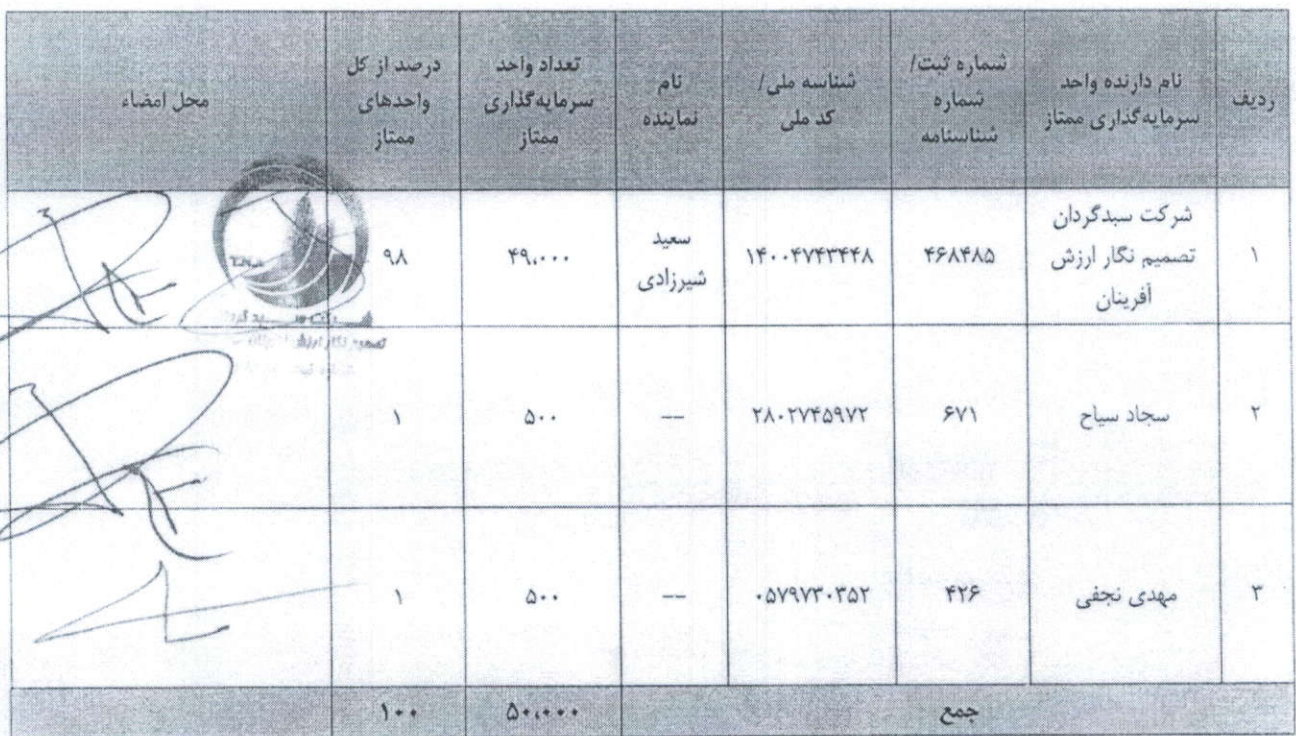 ردیف
نام دارنده واحد
سرمایه‌گذاری ممتاز
شماره ثبت/
شماره
شناسنامه
شناسه ملی/
کد ملی
نام
نماینده
تعداد واحد
سرمایه‌گذاری
ممتاز
درصد از کل
واحدهای
ممتاز
محل امضاء
۱
شرکت سبدگردان
تصمیم نگار ارزش
آفرینان
۴۶۸۴۸۵
۱۴۰۰۴۷۴۳۴۴۸
سعید
شیرزادی
۴۹،۰۰۰
۹۸
تصمیم نگار ارزش
۲
سجاد سیاح
۶۷۱
۲۸۰۲۷۴۵۹۷۲
---
۵۰۰
۱
۳
مهدی نجفی
۴۲۶
۰۵۷۹۷۳۰۳۵۲
---
۵۰۰
۱
جمع
۵۰،۰۰۰
۱۰۰